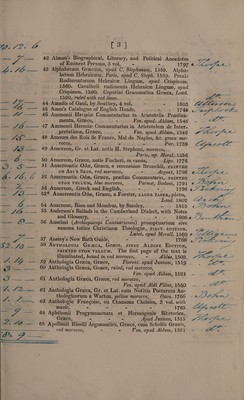 [ 3 ]
42 Almon's Biographical, Literary, and Political Anecdotes
of Eminent Persons, 3 vol. - 1797
43 Alphabetum Græcum, apud C. Stephanum, 1580. Alpha-
betum Hebraicum, Paris, apud C. Steph. 1559. Petalæ
Rudimentorum Hebraicæ Linguæ, apud Crispinum,
1560. Cavallerii rudimenta Hebraicæ Linguæ, apud
Crispinum, 1560. Ceporini Grammatica Græca, Lond.
1585, ruled with red lines.
44 Amadis of Gaul, by Southey, 4 vol. - 1803
45 Ames's Catalogue of English Heads. - 1748
46 Ammonii Hermiæ Commentarius in Aristotelis Prædica-
menta, Græcè, - Ven. apud Aldum, 1546
47 Ammonii Hermiæ Commentarius in Aristotelem de Inter-
pretatione, Græcè, - Ven. apud Aldum, 1546
48 Amours des Rois de France. Mal de Naples, &c. green mo-
rocco, - Par. 1739
49 Anacreon, Gr. et Lat. notis H. Stephani, morocco,
Paris, ap. Morel, 1556
50 Anacreon, Græce, notis Fischeri, in russia, - Lips. 1776
51 Anacreontis Odæ, Græcè, e recensione Brunckii, PRINTED
ON AN S SILK, red morocco, - Argent. 1786
52 Anacreontis Odæ, Græcè, præfixo Commentario, PRINTED
UPON VELLUM, blue morocco, Parmæ, Bodoni, 1791
53 Anacreon, Greek and English, - 1796
53* Anacreontis Odæ, Græcè, a Forster, LARGE PAPER, green
morocco, - Lond. 1802
54 Anacreon, Bion and Moschus, by Stanley, - 1815
55 Anderson's Ballads in the Cumberland Dialect, with Notes
and Glossary, - 1808
56 Anselmi (Archiepisc. Cantuariensis) prosopheticum seu
totius summa Christianæ Theologiæ, FIRST EDITION,
57 Anstey's New Bath Guide, - 1788
58 ANTHOLOGIA GRÆCA, GRÆCE, FIRST ALDINE EDITION,
PRINTED UPON VELLUM. The first page of the text
illuminated, bound in red morocco, - Aldus, 1503
59 Anthologia Græca, Græce, Florent. apud Juntam, 1519
60 Anthologia Græca, Græce, ruled, red morocco,
Ven. apud Aldum, 1521
61 Anthologia Græca, Græce, red morocco,
Ven. apud Aldi Filios, 1550
62 Anthologia Græca, Gr. et Lat. cum Notitia Poetarum An-
thologicorum a Warton, yellow morocco, Oxon. 1766
63 Anthologie Françoise, ou Chansons Choisies, 3 vol. with
music, - 1765
64 Aphthonii Progymnasmata et Hermogenis Rhetorica,
Græcè, - Apud Juntam, 1515
65 Apollonii Rhodii Argonautica, Græcè, cum Scholiis Græcis,
red morocco, - Ven. apud Aldum, 1521